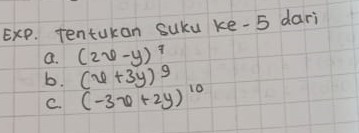 EXP. Tentukan suku ke-5 dari
a. (2x-y)⁷
b. (x+3y)⁹
c. (-3x+2y)¹⁰